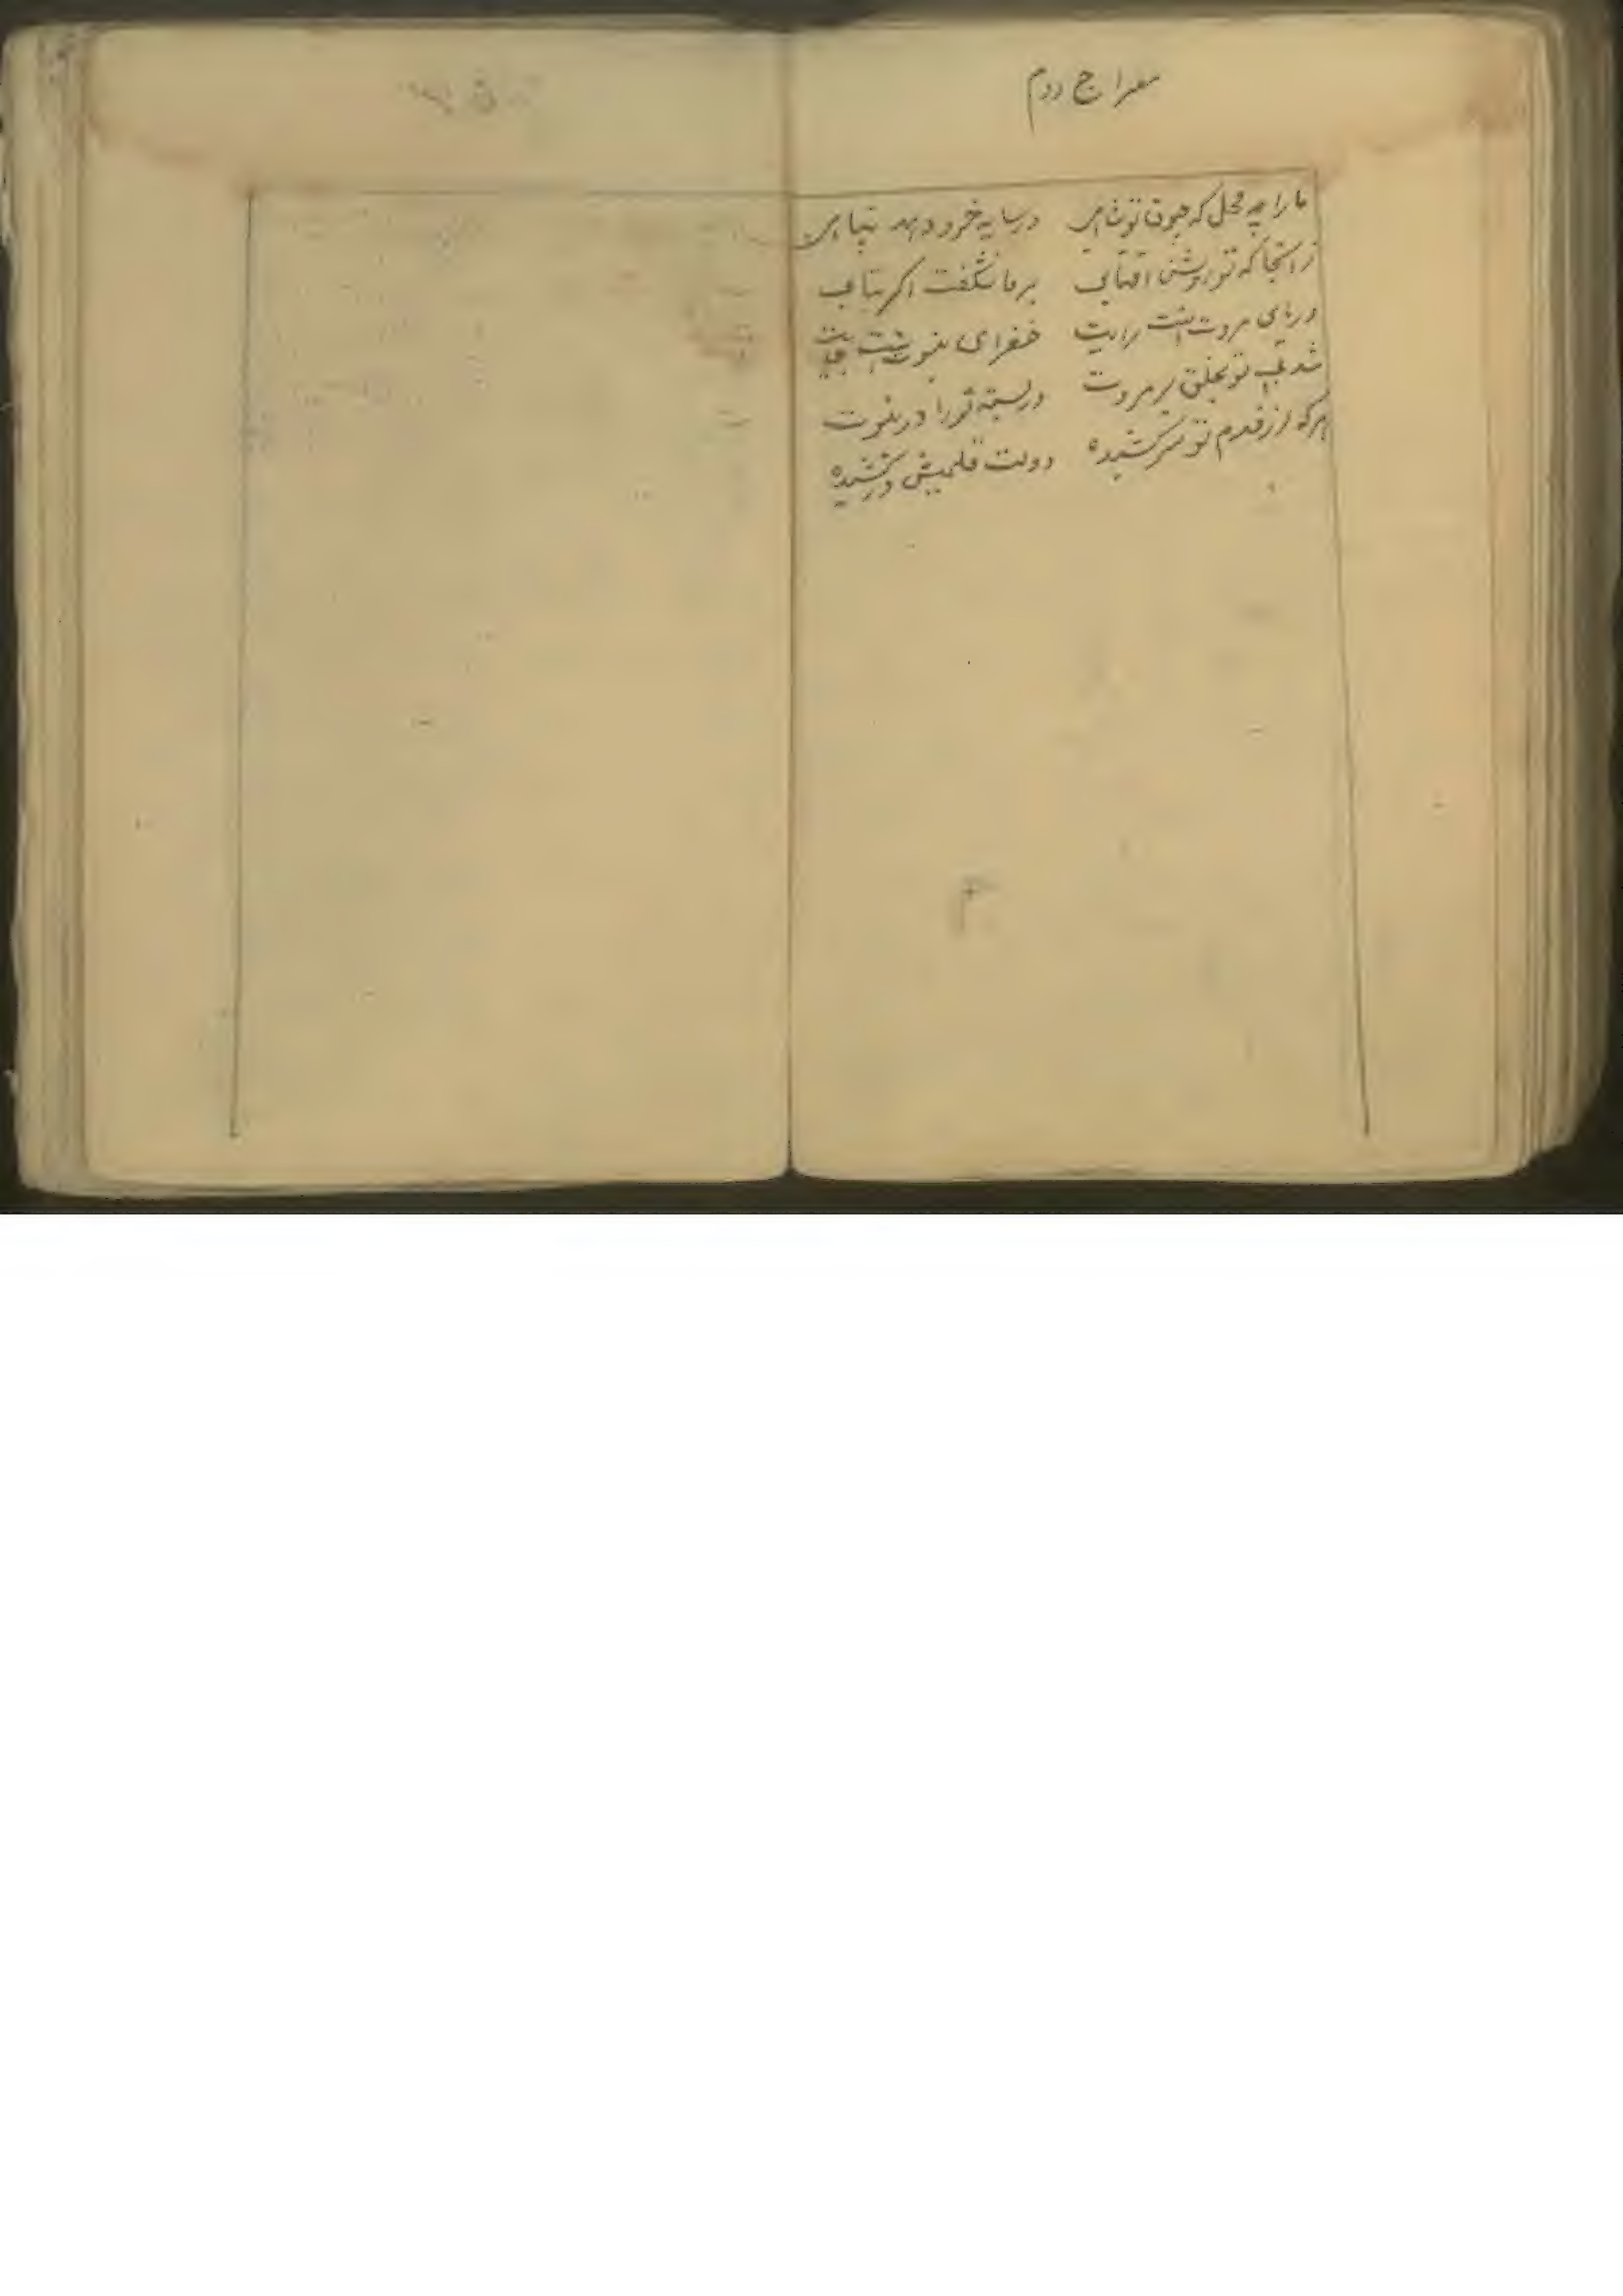 معراج دوم
ما را چه محل که چون تو شاهی در سایه خود دهد پناهی
زانجا که تو روشن آفتابی بر ما نه شگفت اگر بتابی
دریای مروت است رایت خضرای نبوت است جایت
شد بی تو بخلق بر مروت در بسته تر از در نبوت
هرکه از قدم تو سر کشیده دولت قلمیش در کشیده